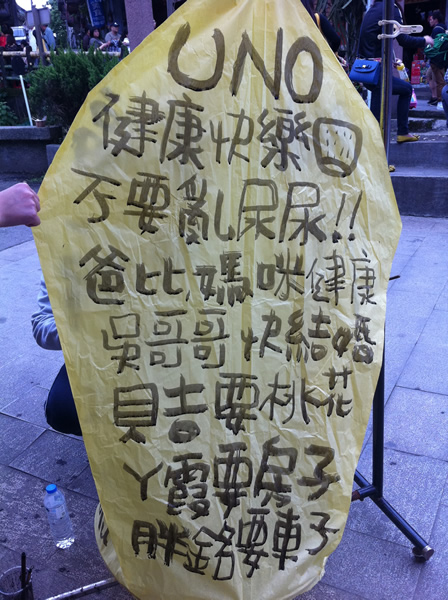 UNO
健康快樂
不要亂尿尿!!
爸比媽咪健康
吳哥哥快結婚
貝吉要桃花
丫霞要房子
胖銘要車子